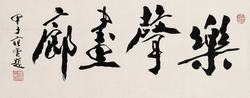 樂聲畫廊
甲子題